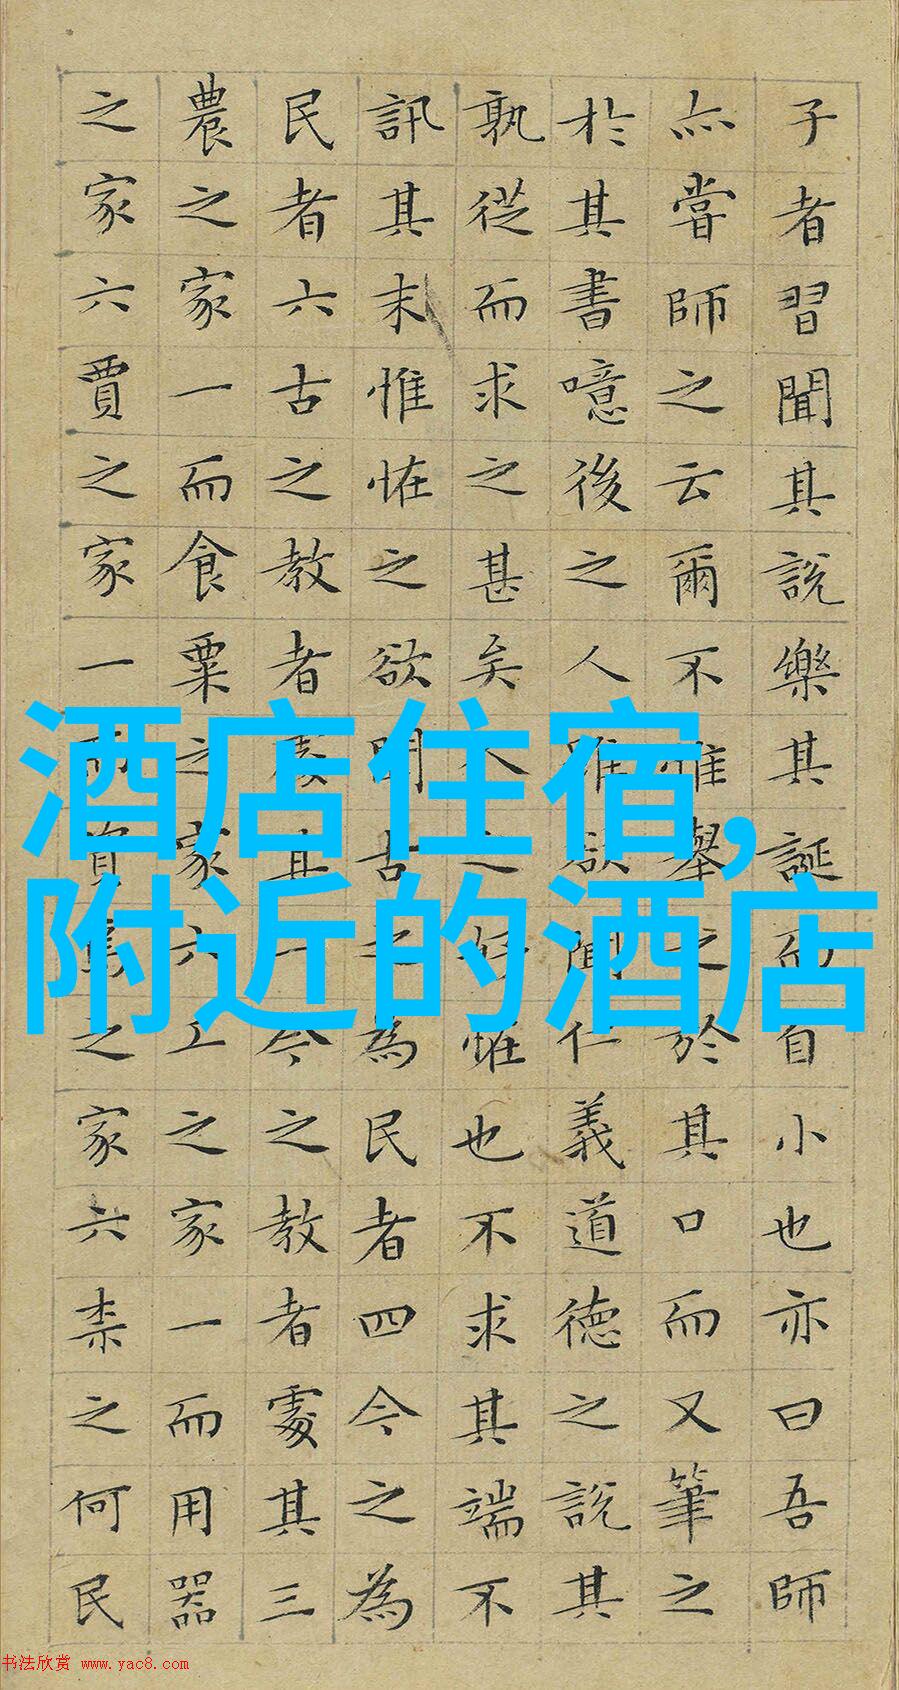 子者習聞其說樂其誕而自小也亦曰吾師
亦嘗師之云爾不惟舉之於其口而又筆之
於其書噫後之人雖欲聞仁義道德之說其
孰從而求之甚矣人之好恠也不求其端不
訊其末惟恠之欲聞古之為民者四今之為
民者六古之教者處其一今之教者處其三
農之家一而食粟之家六工之家一而用器
之家六賈之家一而資焉之家六柰之何民
酒店住宿,
附近的酒店
书法欣赏 www.yac8.com